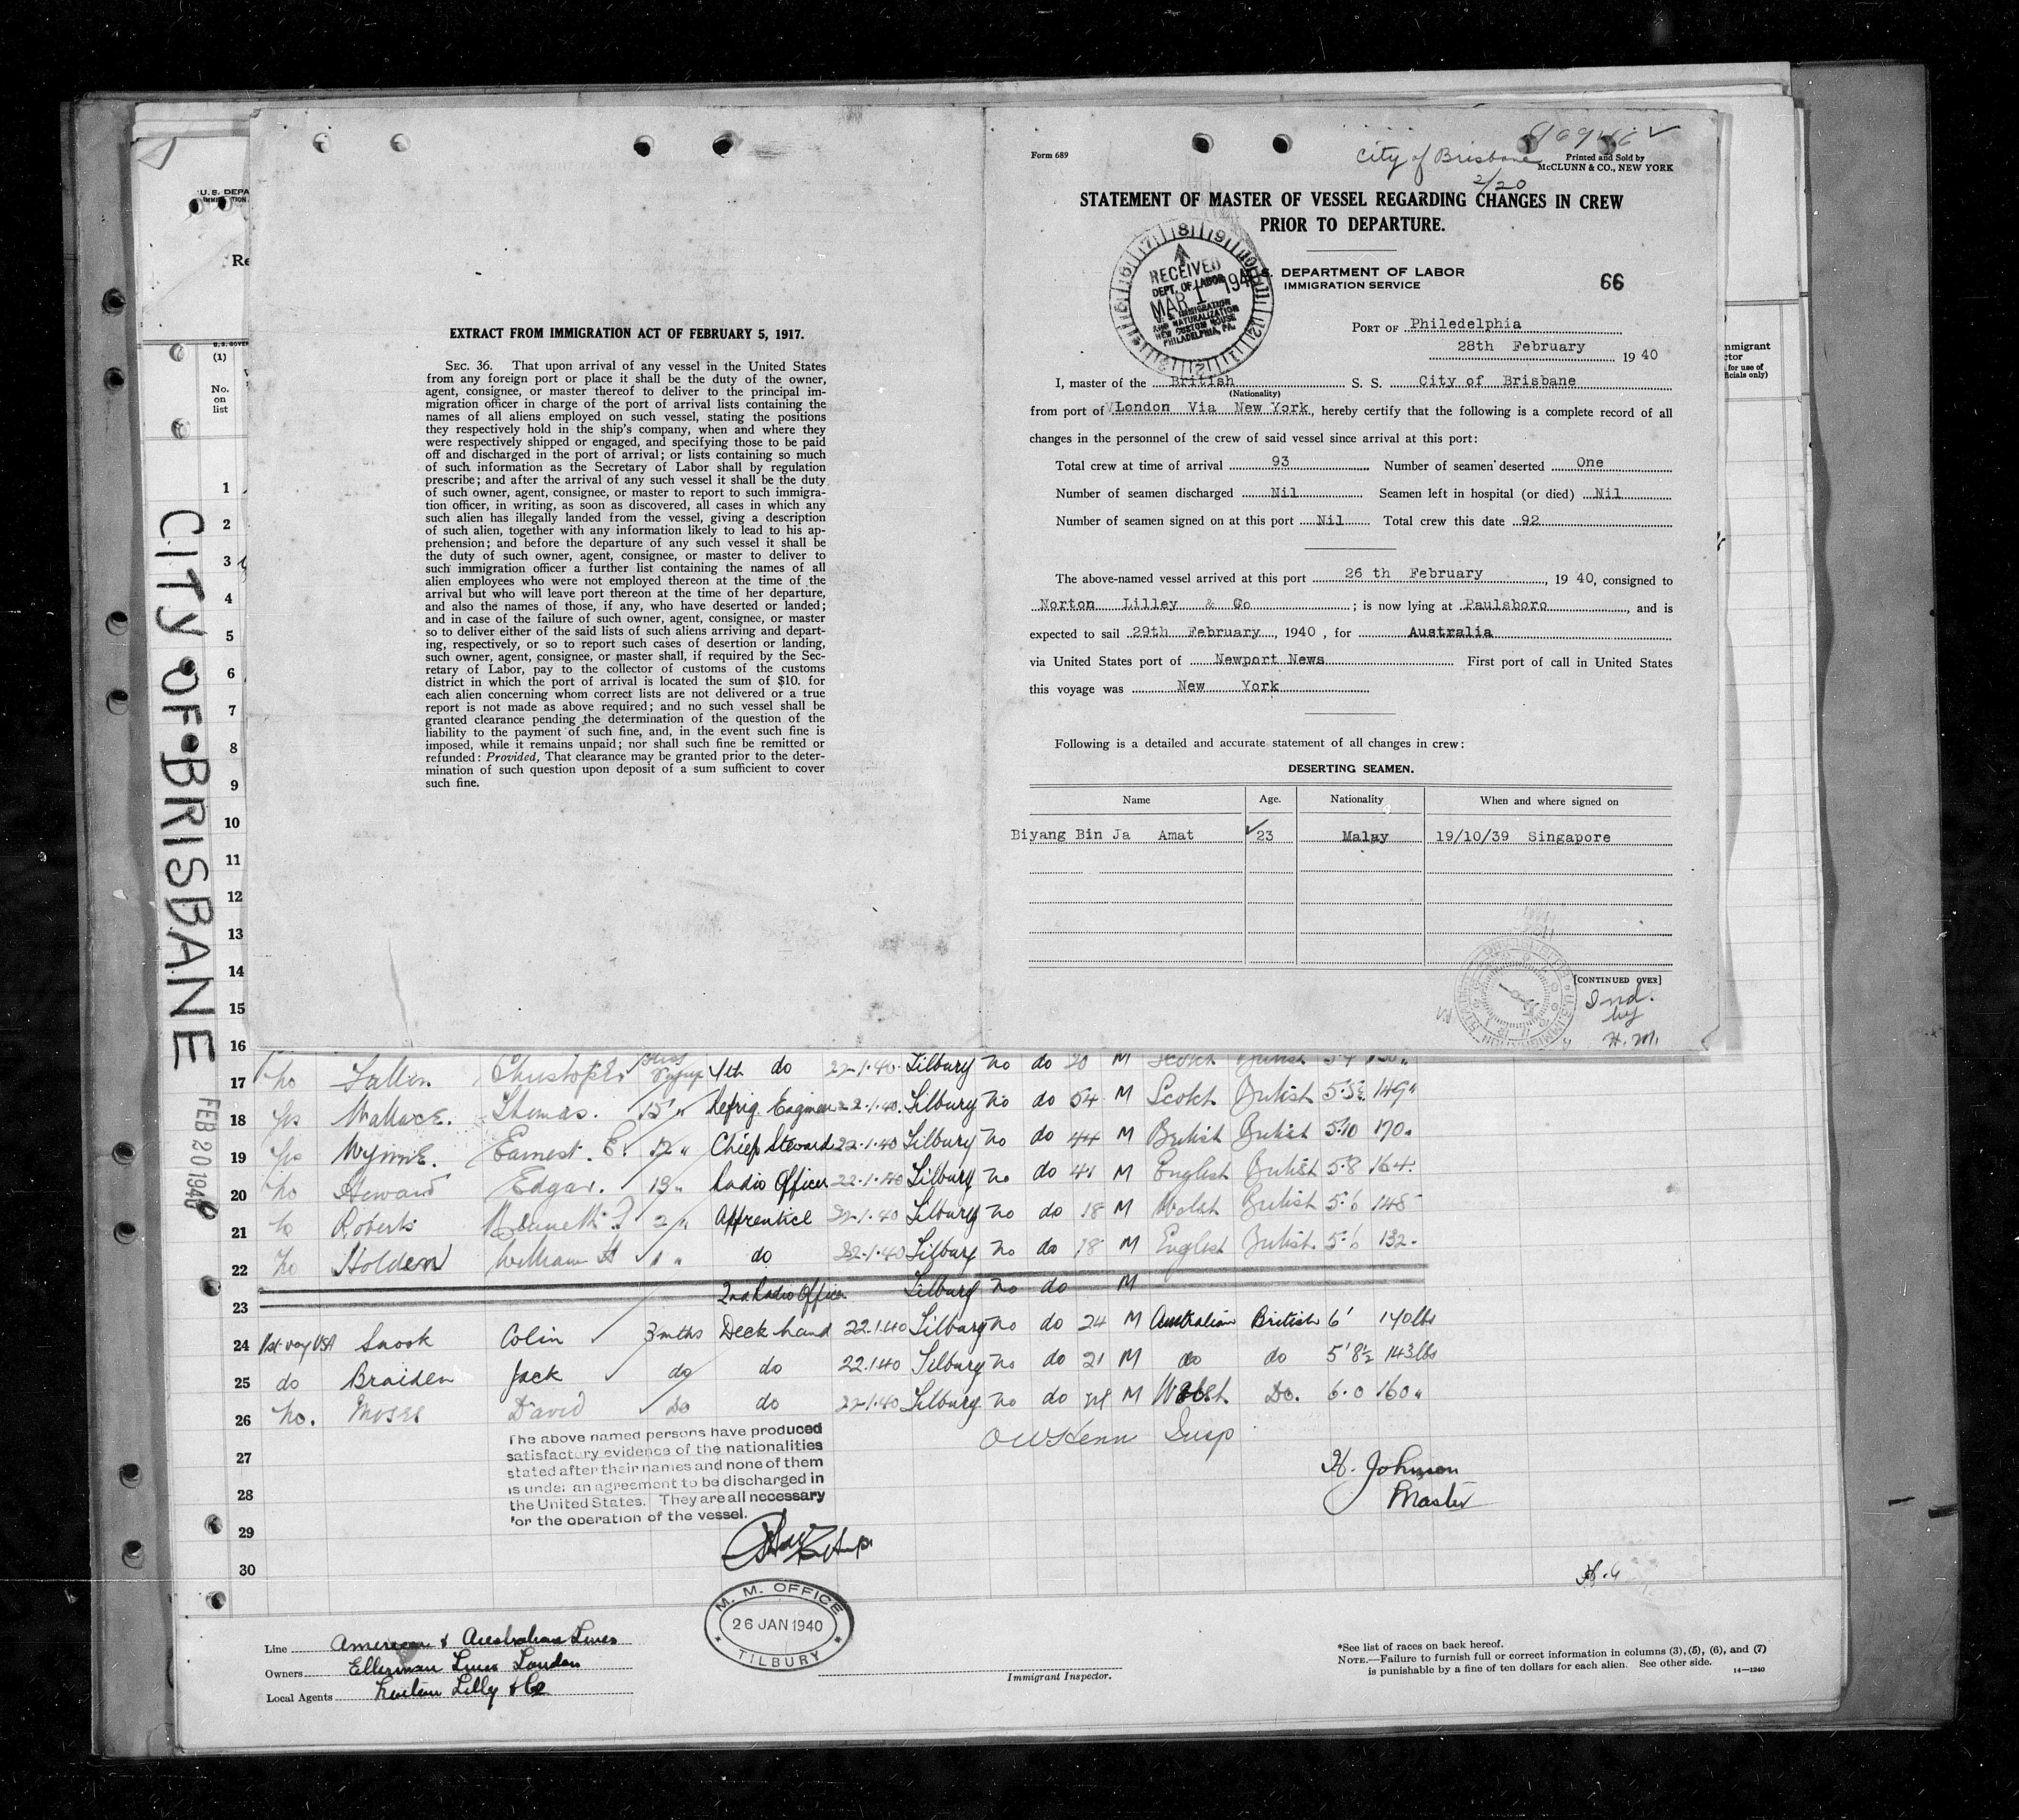 U. S. DEPA
Re
(1)
No.
on
list
CITY OF BRISBANE
FEB 20 1940
EXTRACT FROM IMMIGRATION ACT OF FEBRUARY 5, 1917.
SEC. 36. That upon arrival of any vessel in the United States
from any foreign port or place it shall be the duty of the owner,
agent, consignee, or master thereof to deliver to the principal im-
migration officer in charge of the port of arrival lists containing the
names of all aliens employed on such vessel, stating the positions
they respectively hold in the ship's company, when and where they
were respectively shipped or engaged, and specifying those to be paid
off and discharged in the port of arrival; or lists containing so much
of such information as the Secretary of Labor shall by regulation
prescribe; and after the arrival of any such vessel it shall be the duty
of such owner, agent, consignee, or master to report to such immigra-
tion officer, in writing, as soon as discovered, all cases in which any
such alien has illegally landed from the vessel, giving a description
of such alien, together with any information likely to lead to his ap-
prehension; and before the departure of any such vessel it shall be
the duty of such owner, agent, consignee, or master to deliver to
such immigration officer a further list containing the names of all
alien employees who were not employed thereon at the time of the
arrival but who will leave port thereon at the time of her departure,
and also the names of those, if any, who have deserted or landed;
and in case of the failure of such owner, agent, consignee, or master
so to deliver either of the said lists of such aliens arriving and depart-
ing, respectively, or so to report such cases of desertion or landing,
such owner, agent, consignee, or master shall, if required by the Sec-
retary of Labor, pay to the collector of customs of the customs
district in which the port of arrival is located the sum of $10. for
each alien concerning whom correct lists are not delivered or a true
report is not made as above required; and no such vessel shall be
granted clearance pending the determination of the question of the
liability to the payment of such fine, and, in the event such fine is
imposed, while it remains unpaid; nor shall such fine be remitted or
refunded: Provided, That clearance may be granted prior to the deter-
mination of such question upon deposit of a sum sufficient to cover
such fine.
Form 689
City of Brisbane
2/20
Printed and Sold by
McCLUNN & CO., NEW YORK
STATEMENT OF MASTER OF VESSEL REGARDING CHANGES IN CREW
PRIOR TO DEPARTURE.
RECEIVED
DEPT. OF LABOR
MAR 1 1940
U. S. IMMIGRATION
AND NATURALIZATION
NEW CUSTOM HOUSE
PHILADELPHIA, PA.
S. DEPARTMENT OF LABOR
IMMIGRATION SERVICE
66
PORT OF Philedelphia
28th February 19 40
I, master of the British S. S. City of Brisbane
(Nationality)
from port of London Via New York, hereby certify that the following is a complete record of all
changes in the personnel of the crew of said vessel since arrival at this port:
Total crew at time of arrival 93 Number of seamen deserted One
Number of seamen discharged Nil Seamen left in hospital (or died) Nil
Number of seamen signed on at this port Nil Total crew this date 92
The above-named vessel arrived at this port 26 th February, 19 40, consigned to
Norton Lilley & Co; is now lying at Paulsboro, and is
expected to sail 29th February, 1940, for Australia
via United States port of Newport News First port of call in United States
this voyage was New York
Following is a detailed and accurate statement of all changes in crew:
DESERTING SEAMEN.
Name Age. Nationality When and where signed on
Biyang Bin Ja Amat 23 Malay 19/10/39 Singapore
[CONTINUED OVER]
Ind.
by
H. M.
mmigrant
ctor
for use of
ficials only)
1
2
3
4
5
6
7
8
9
10
11
12
13
14
15
16
17 no Christopher 4th do 22-1-40 Tilbury no do 20 M Scotch British
18 yes Wallace. Thomas. 15 " Refrig. Engineer 22-1-40. Tilbury no do 54 M Scotch British 149"
19 yes Wynne. Earnest. E. 12 " Chief Steward 22-1-40 Tilbury no do 44 M British British 5-10 170"
20 no Howard Edgar. 19 " Radio Officer 22-1-40 Tilbury no do 41 M English British 5-8 164
21 no Roberts 2 " Apprentice 22-1-40 Tilbury no do 18 M Welsh British 5-6 148
22 no Holden William H 1 " do 22-1-40 Tilbury no do 18 M English British 5-6 132
23 2nd Radio Officer Tilbury no do M
24 1st voy USA Snook Colin 3 mths Deck hand 22.1.40 Tilbury no do 24 M Australian British 6' 140lbs
25 do Braiden Jack do do 22.1.40 Tilbury no do 21 M do do 5'8½ 143lbs
26 no. Moses David do do 22-1-40 Tilbury no do 21 M Welsh Do. 6-0 160"
27
28
29
30
The above named persons have produced
satisfactory evidence of the nationalities
stated after their names and none of them
is under an agreement to be discharged in
the United States. They are all necessary
for the operation of the vessel.
Insp
H. Johnson
Master
M. M. OFFICE
26 JAN 1940
TILBURY
Line American & Australian Lines
Owners Ellerman Lines London
Local Agents Norton Lilly & Co
Immigrant Inspector.
*See list of races on back hereof.
NOTE.—Failure to furnish full or correct information in columns (3), (5), (6), and (7)
is punishable by a fine of ten dollars for each alien. See other side. 14—1240